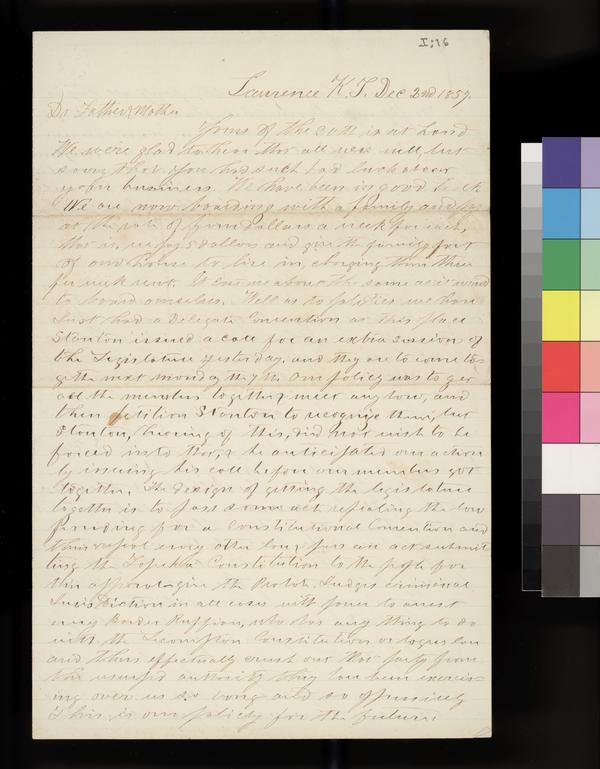 I;16
Lawrence K.T. Dec 2nd 1857.
Dr Father & Mother
Yours of the 20th is at hand
We were glad to hear that all were well, but
sorry that you had such bad luck about
your business. We have been in good
We are now boarding with a family and pay
at the rate of four Dollars a week for each,
that is, we pay 5 dollars and give the family part
of our house to live in, charging them three
per week rent. It cost us about the same as it would
to board ourselves. Well as to politics we have
Just had a Delegate Convention at this place
Stanton issued a call for an extra session of
the Legislature yesterday, and they are to come to
gether next monday the 7th. Our policy was to get
all the members together meet any how, and
then petition Stanton to recognize them, but
Stanton, hearing of this, did not wish to be
forced into that, & he anticipated our action
by issuing his call before our members got
together. The design of getting the legislature
together is to pass some act repealing the law
Providing for a Constitutional Convention and
then repeal every other law, pass an act submit
ting the Topeka Constitution to the people for
their approval, give the Probate Judges criminal
Jurisdiction in all cases with power to arrest
every Border Ruffian, who has any thing to do
with the Lecompton Constitution or bogus law
and thus effectually crush out that party from
the usurped authority they have been exercis-
ing over us so long and so offensively
This is our policy for the future.